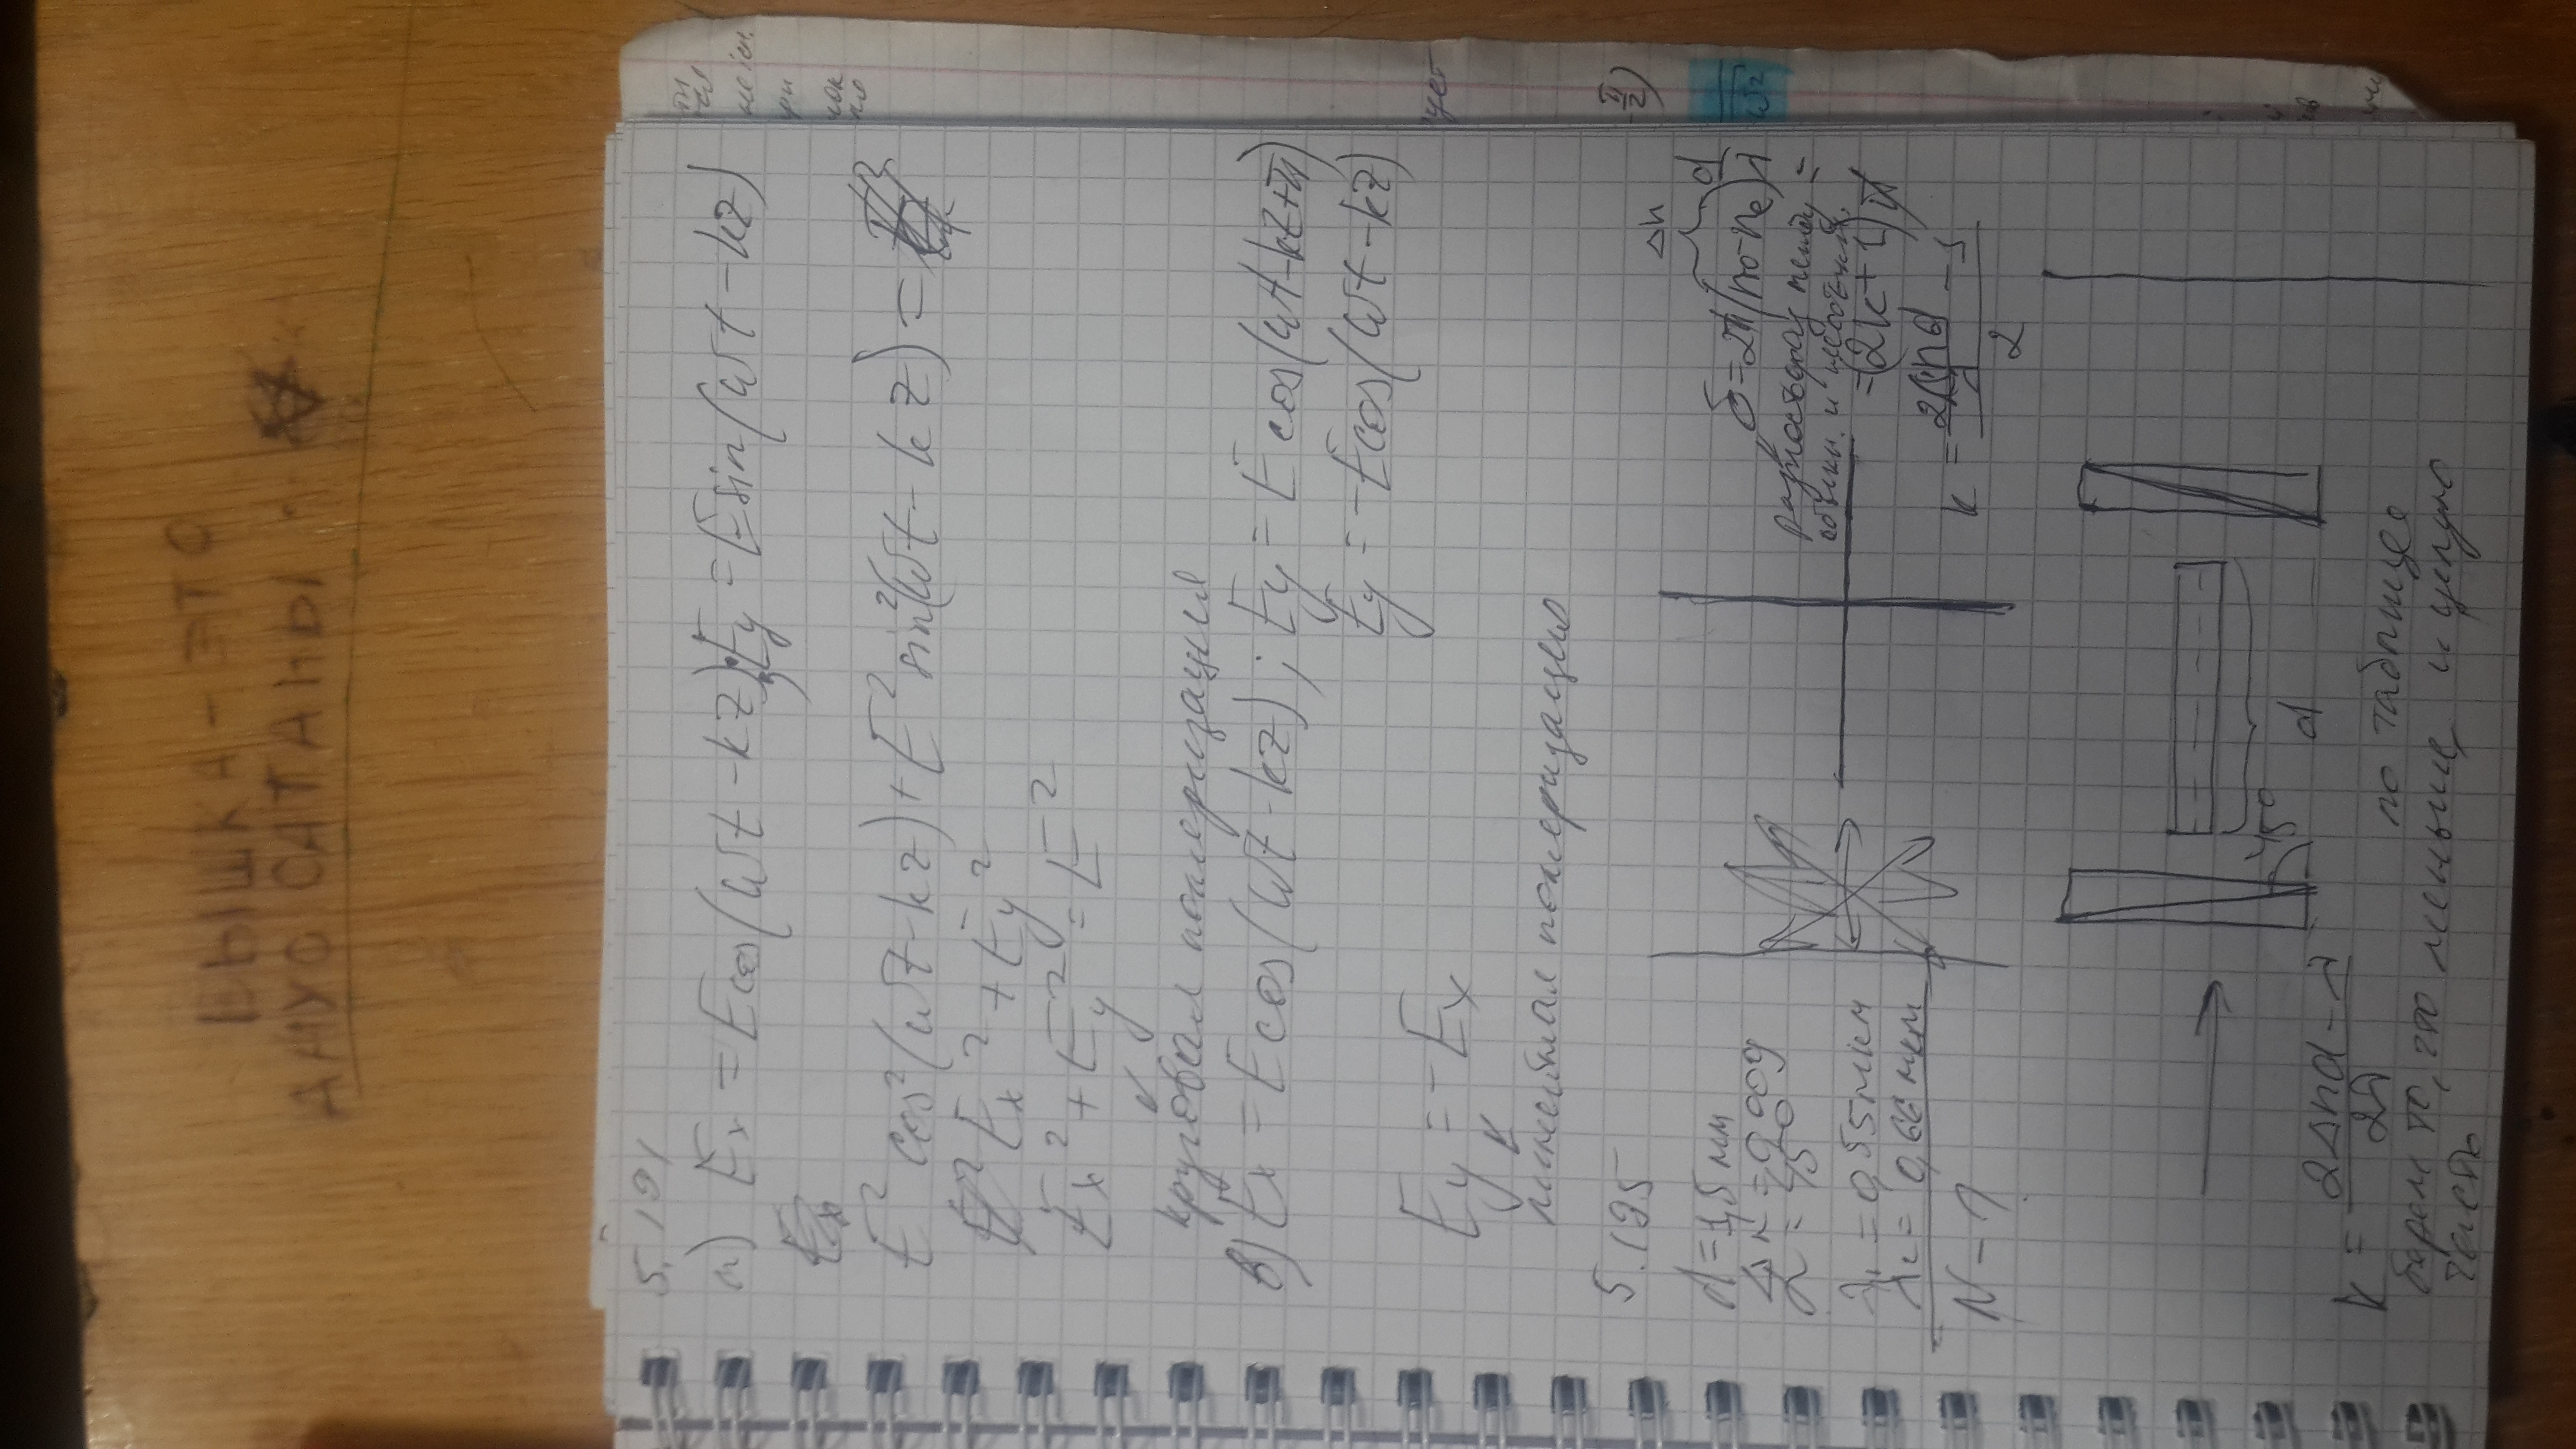 ВЫШКА - ЭТО
АНУС САТАНЫ
5.191
а) Ex = E cos(ωt - kz); Ey = E sin(ωt - kz)
E² cos²(ωt - kz) + E² sin²(ωt - kz) =
Ex² + Ey²
Ex² + Ey² = E²
круговая поляризация
в) Ex = E cos(ωt - kz); Ey = E cos(ωt - kz + π)
Ey = -E cos(ωt - kz)
Ey = -Ex
линейная поляризация
5.195
d = 1,5 мм
Δn = 0,009
α = 45°
λ₁ = 0,55 мкм
λ₂ = 0,66 мкм
N - ?
Δn
δ = 2π(no - ne) d/λ
разность фаз между =
обыкн. и необыкн.
= (2k + 1)π
k = (2Δnd/λ - 1)/2
45°
d
k = (2Δnd - λ)/2λ
по таблице
берем то, что меньше, и целую
часть